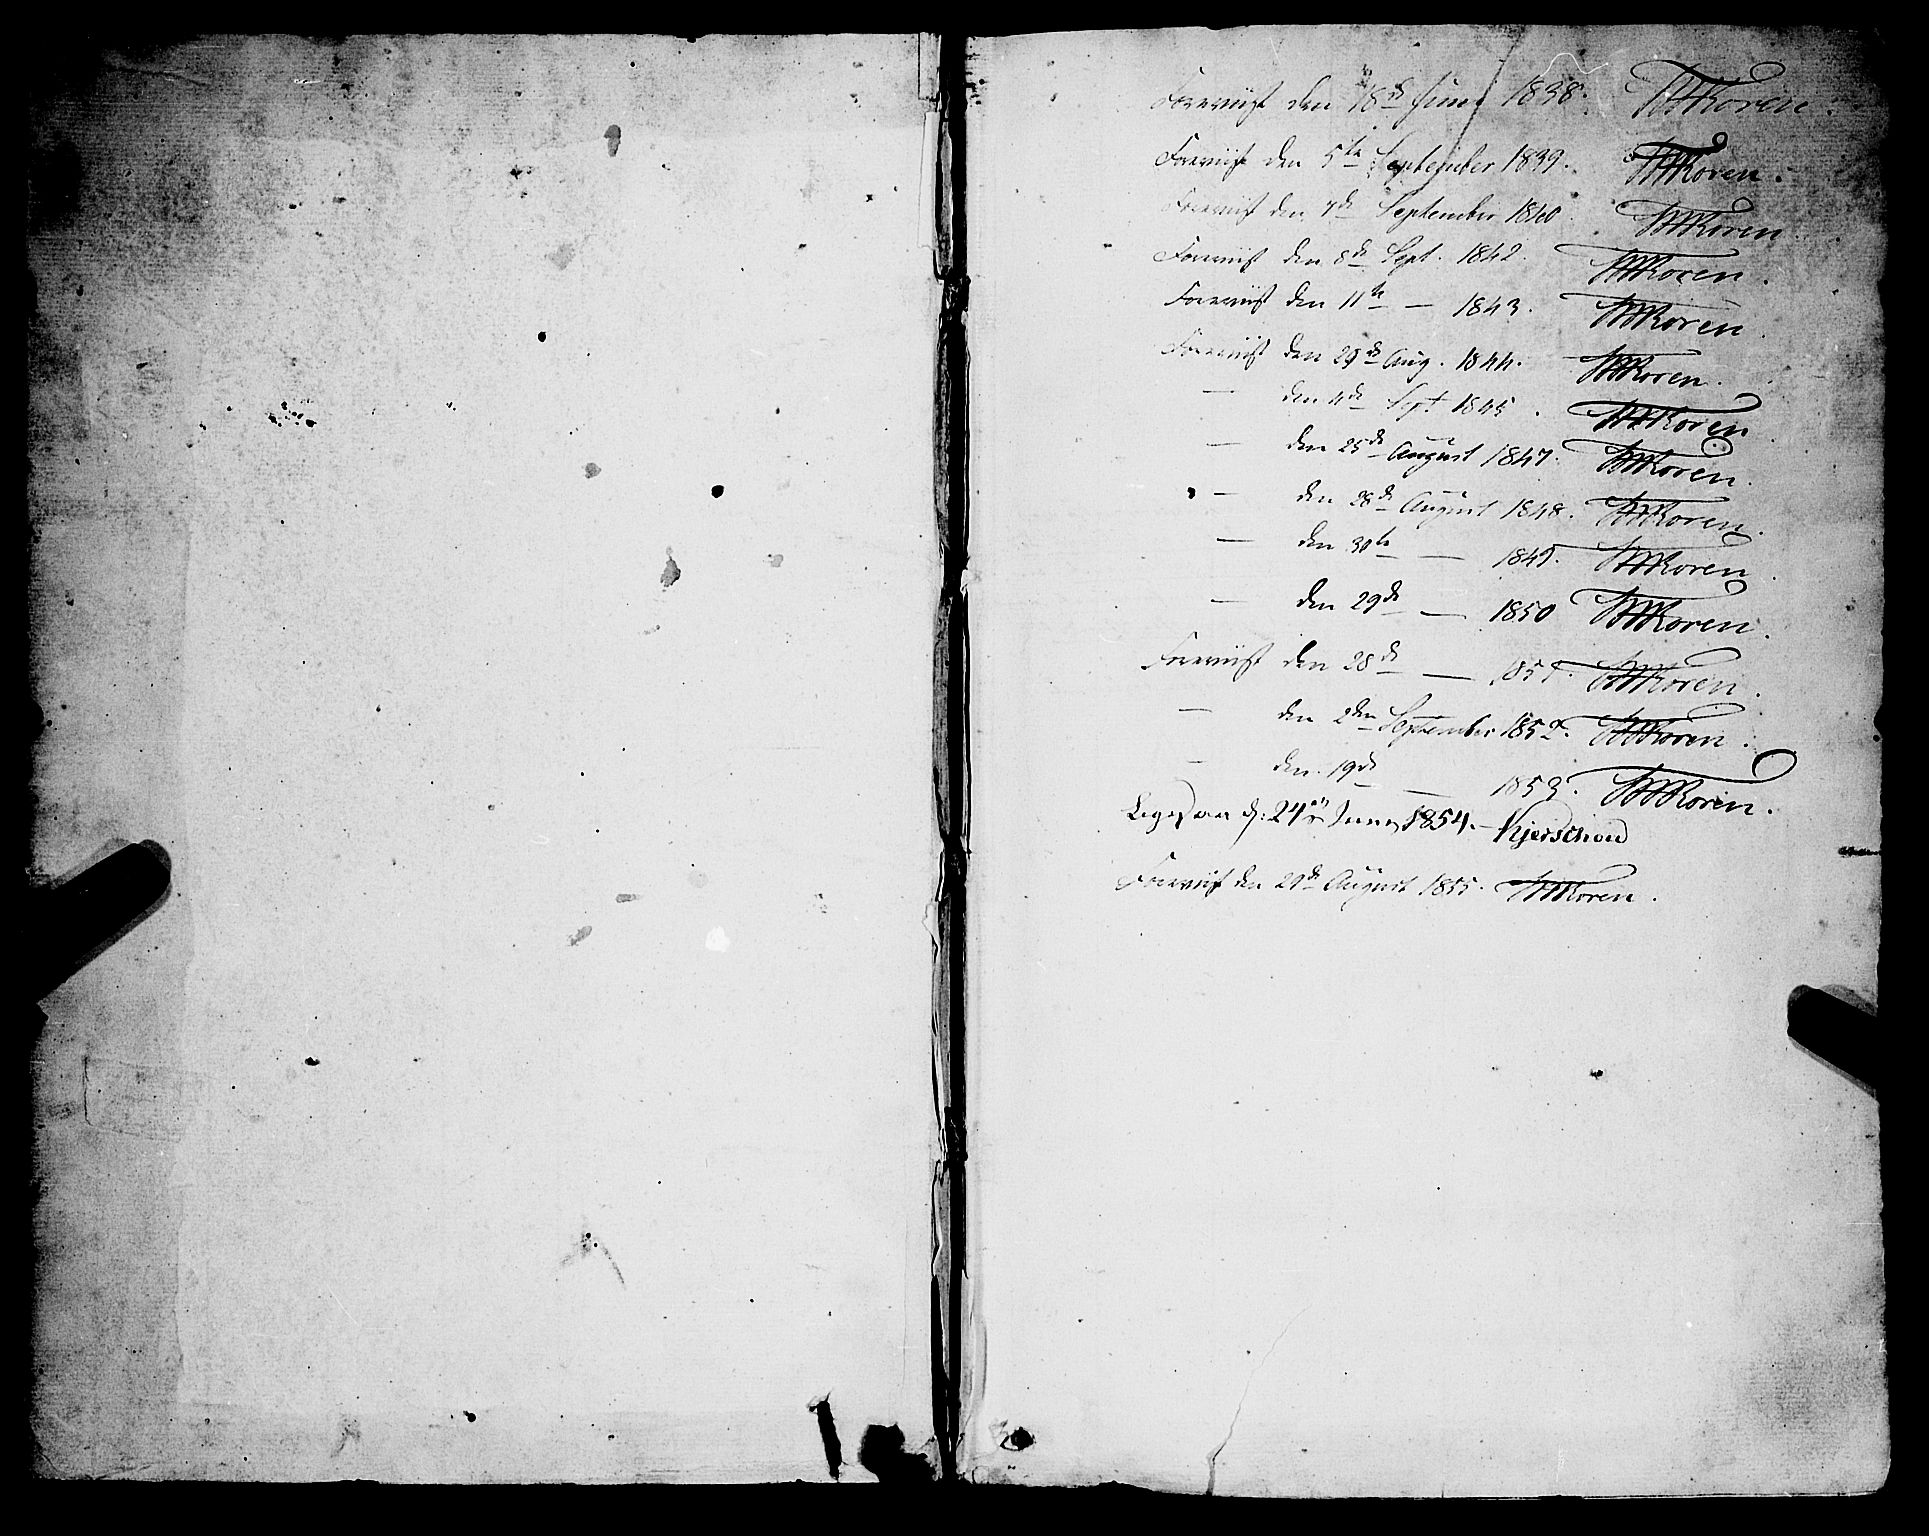 Foreviist den 18de Juni 1838. WMKoren.
Foreviist den 5te September 1839. WMKoren.
Foreviist den 7de September 1840. WMKoren
Foreviist den 8de Sept. 1842. WMKoren.
Foreviist den 11te — 1843. WMKoren.
Foreviist den 29de Aug. 1844. WMKoren.
— den 4de Sept 1845. WMKoren.
— den 25de August 1847. WMKoren.
— den 28de August 1848. WMKoren.
— den 30te — 1849. WMKoren.
— den 29de — 1850 WMKoren.
Foreviist den 28de — 1851. WMKoren.
— den 2den September 1852. WMKoren.
— den 19de — 1853. WMKoren.
d: 24 Juni 1854. Kjerschow
Foreviist den 29de August 1855. WMKoren.